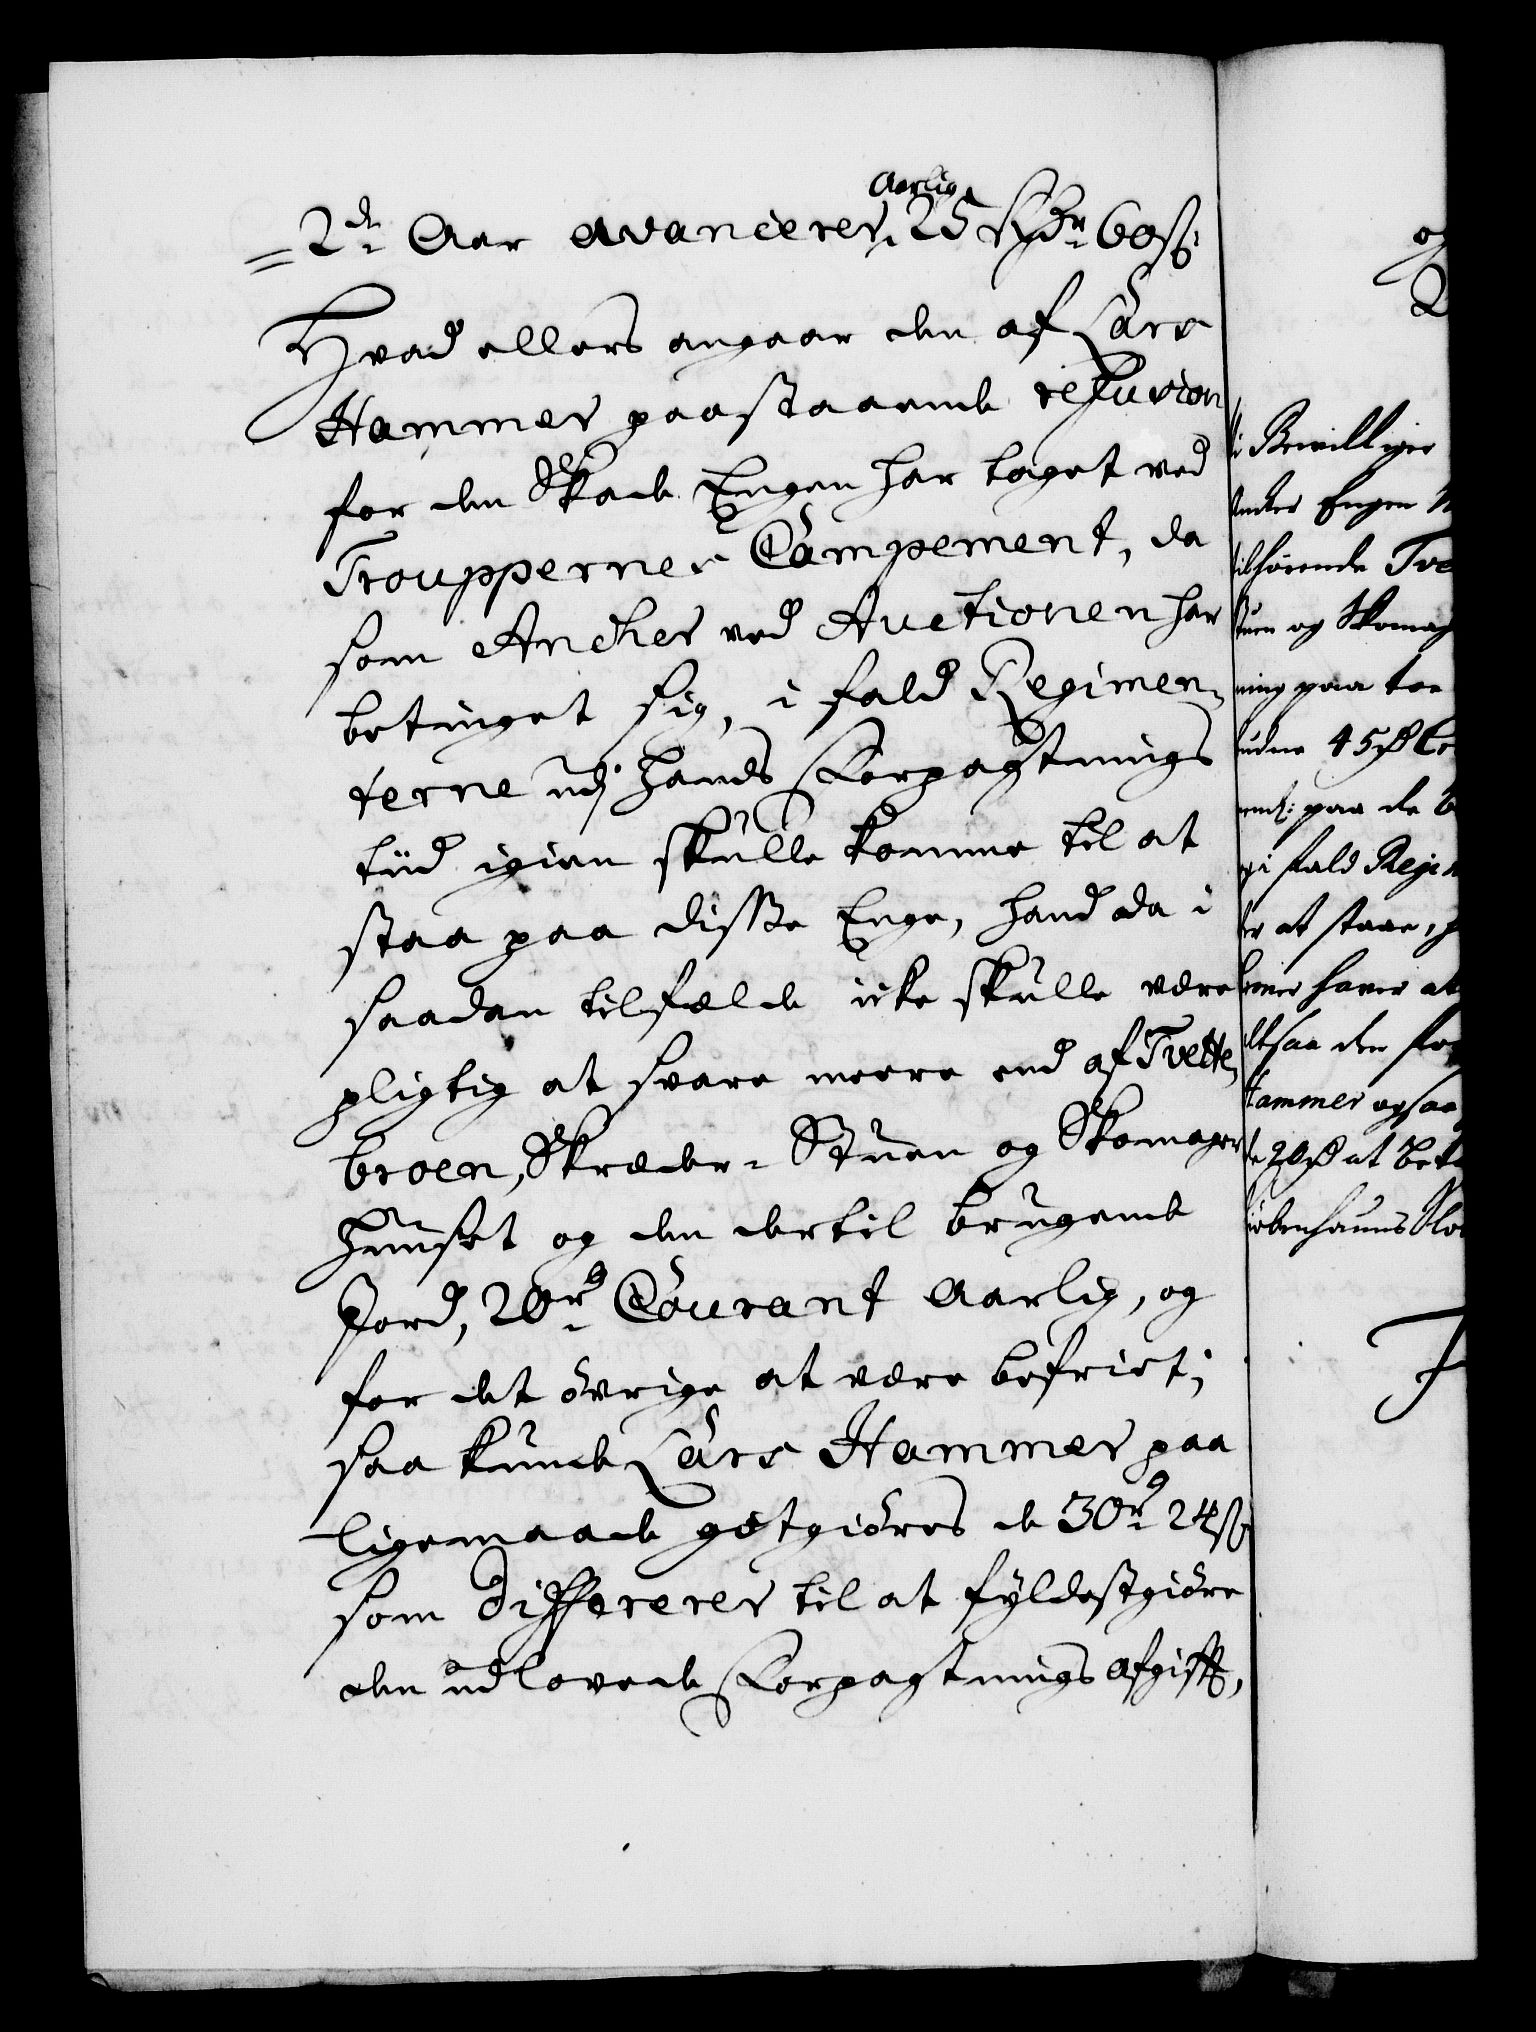 = 2de Aar avancerer Aarlig 25 Rdr 60 ß.
Hvad ellers angaar den af Lars
Hammer paastaaende refusion
for den Skade Engen har taget ved
Trouppernes Campement, da
som Ancher ved Auctionen har
betinget sig, i fald Regimen-
terne udj hands Forpagtnings
tiid igien skulle komme til at
staa paa disse Enge, hand da i
saadan tilfælde icke skulle være
pligtig at svare meere end af Tvette
broen, Skreder-Stuen og Skomager
Huuset og den dertil brugende
Jord, 20 rd Courant Aarlig, og
for det övrige at være befriet;
saa kunde Lars Hammer paa
ligemaade gotgiöres de 30 rd 24 ß
som differerer til at fyldestgiöre
den udlovede Forpagtnings Afgifft,
og
i Bevilliger
Ancher Engen
tilhörende Tve
Stuen og Skomag
ning paa toe
budne 45 rd Co
paa de
i fald Regi
at staae,
haver at
altsaa den for
Hammer ogsaa
de 20 rd at bet
iöbenhauns Slo